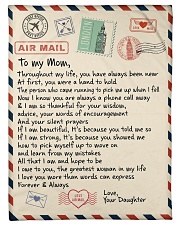 AIR MAIL
To my Mom,
Throughout my life, you have always been near
At first, you were a hand to hold
The person who came running to pick me up when I fell
Now I know you are always a phone call away
& I am so thankful for your wisdom,
advice, your words of encouragement
And your silent prayers
If I am beautiful, It's because you told me so
If I am strong, It's because you showed me
how to pick myself up to move on
and learn from my mistakes
All that I am and hope to be
I owe to you, the greatest woman in my life
I love you more than words can express
Forever & Always.
Love,
Your Daughter